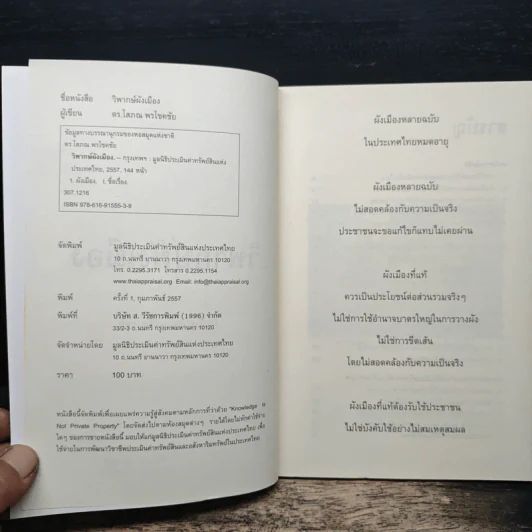 ชื่อหนังสือ วิพากษ์ผังเมือง
ผู้เขียน ดร.โสภณ พรโชคชัย
ข้อมูลทางบรรณานุกรมของหอสมุดแห่งชาติ
ดร.โสภณ พรโชคชัย
วิพากษ์ผังเมือง. -- กรุงเทพฯ : มูลนิธิประเมินค่าทรัพย์สินแห่ง
ประเทศไทย, 2557. 144 หน้า
1. ผังเมือง. I. ชื่อเรื่อง.
307.1216
ISBN 978-616-91555-3-9
จัดพิมพ์ มูลนิธิประเมินค่าทรัพย์สินแห่งประเทศไทย
10 ถ.นนทรี ยานนาวา กรุงเทพมหานคร 10120
โทร. 0.2295.3171 โทรสาร 0.2295.1154
www.thaiappraisal.org Email: info@thaiappraisal.org
พิมพ์ ครั้งที่ 1, กุมภาพันธ์ 2557
พิมพ์ที่ บริษัท ส. วีรัชการพิมพ์ (1996) จำกัด
33/2-3 ถ.นนทรี กรุงเทพมหานคร 10120
จัดจำหน่ายโดย มูลนิธิประเมินค่าทรัพย์สินแห่งประเทศไทย
10 ถ.นนทรี ยานนาวา กรุงเทพมหานคร 10120
ราคา 100 บาท
หนังสือนี้จัดพิมพ์เพื่อเผยแพร่ความรู้สู่สังคมตามหลักการที่ว่าด้วย "Knowledge is
Not Private Property" โดยจัดส่งไปตามห้องสมุดต่างๆ รายได้โดยไม่หักค่าใช้จ่าย
ใดๆ ของการขายหนังสือนี้ มอบให้แก่มูลนิธิประเมินค่าทรัพย์สินแห่งประเทศไทย เพื่อ
ใช้จ่ายในการพัฒนาวิชาชีพประเมินค่าทรัพย์สินและอสังหาริมทรัพย์ในประเทศไทย
ผังเมืองหลายฉบับ
ในประเทศไทยหมดอายุ
ผังเมืองหลายฉบับ
ไม่สอดคล้องกับความเป็นจริง
ประชาชนจะขอแก้ไขก็แทบไม่เคยผ่าน
ผังเมืองที่แท้
ควรเป็นประโยชน์ต่อส่วนรวมจริงๆ
ไม่ใช่การใช้อำนาจบาตรใหญ่ในการวางผัง
ไม่ใช่การขีดเส้น
โดยไม่สอดคล้องกับความเป็นจริง
ผังเมืองที่แท้ต้องรับใช้ประชาชน
ไม่ใช่บังคับใช้อย่างไม่สมเหตุสมผล